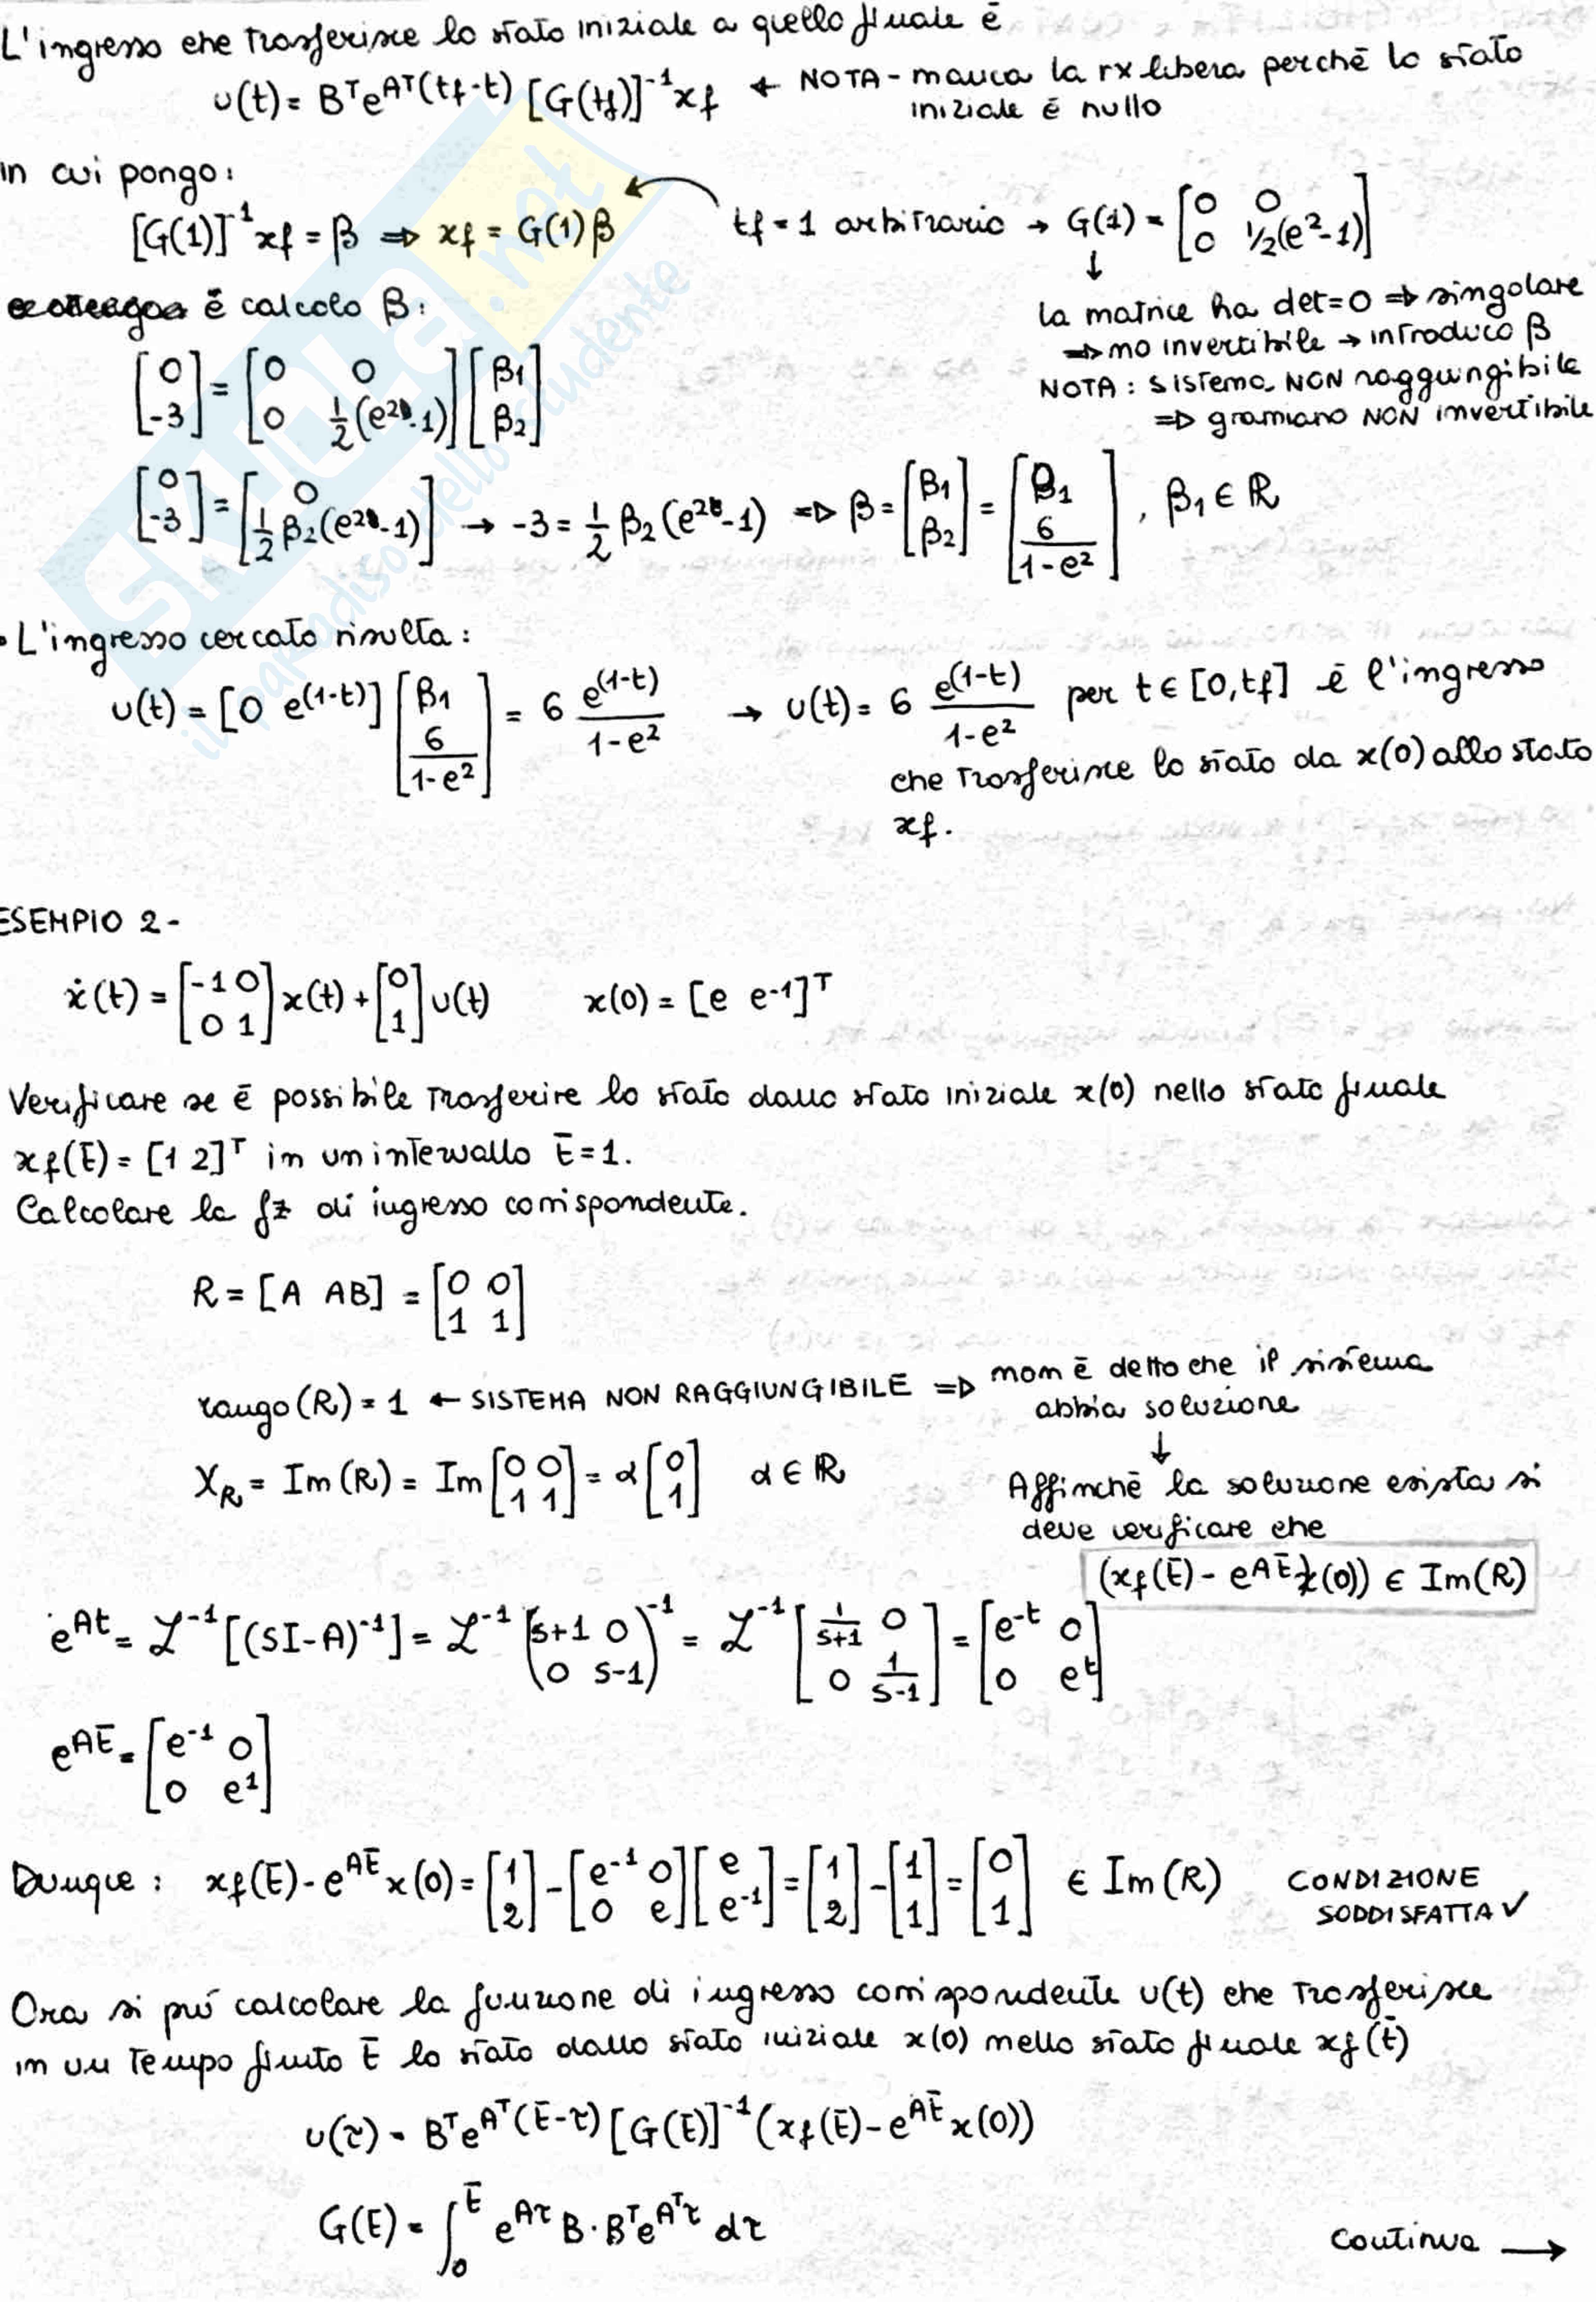 L'ingresso che trasferisce lo stato iniziale a quello finale é
u(t) = Bᵀe^Aᵀ(tf-t) [G(tf)]⁻¹xf ← NOTA - manca la rx libera perché lo stato
iniziale é nullo
in cui pongo:
[G(1)]⁻¹xf = β ⇒ xf = G(1)β
tf = 1 arbitrario → G(1) = [0 0; 0 1/2(e²-1)]
↓
la matrice ha det=0 ⇒ singolare
⇒ no invertibile → introduco β
NOTA: sistema NON raggiungibile
⇒ gramiano NON invertibile
é calcolo β:
[0; -3] = [0 0; 0 1/2(e²-1)] [β1; β2]
[0; -3] = [0; 1/2 β2(e²-1)] → -3 = 1/2 β2(e²-1) ⇒ β = [β1; β2] = [β1; 6/(1-e²)], β1 ∈ ℝ
• L'ingresso cercato risulta:
u(t) = [0 e^(1-t)] [β1; 6/(1-e²)] = 6 e^(1-t)/(1-e²) → u(t) = 6 e^(1-t)/(1-e²) per t ∈ [0,tf] é l'ingresso
che trasferisce lo stato da x(0) allo stato
xf.
ESEMPIO 2 -
ẋ(t) = [-1 0; 0 1] x(t) + [0; 1] u(t) x(0) = [e e⁻¹]ᵀ
Verificare se é possibile trasferire lo stato dallo stato iniziale x(0) nello stato finale
xf(t̄) = [1 2]ᵀ in un intervallo t̄=1.
Calcolare la fz di ingresso corrispondente.
R = [A AB] = [0 0; 1 1]
rango(R) = 1 ← SISTEMA NON RAGGIUNGIBILE ⇒ non é detto che il sistema
abbia soluzione
↓
X_R = Im(R) = Im [0 0; 1 1] = α [0; 1] α ∈ ℝ
Affinché la soluzione esista si
deve verificare che
(xf(t̄) - e^At̄ x(0)) ∈ Im(R)
e^At = ℒ⁻¹[(SI-A)⁻¹] = ℒ⁻¹ (s+1 0; 0 s-1)⁻¹ = ℒ⁻¹ [1/(s+1) 0; 0 1/(s-1)] = [e^-t 0; 0 e^t]
e^At̄ = [e⁻¹ 0; 0 e¹]
Dunque: xf(t̄) - e^At̄ x(0) = [1; 2] - [e⁻¹ 0; 0 e] [e; e⁻¹] = [1; 2] - [1; 1] = [0; 1] ∈ Im(R) CONDIZIONE
SODDISFATTA ✓
Ora si puó calcolare la funzione di ingresso corrispondente u(t) che trasferisce
in un tempo finito t̄ lo stato dallo stato iniziale x(0) nello stato finale xf(t̄)
u(τ) = Bᵀe^Aᵀ(t̄-τ) [G(t̄)]⁻¹ (xf(t̄) - e^At̄ x(0))
G(t̄) = ∫₀^t̄ e^Aτ B·Bᵀe^Aᵀτ dτ
continua →
SKUOLA.net
il paradiso dello studente